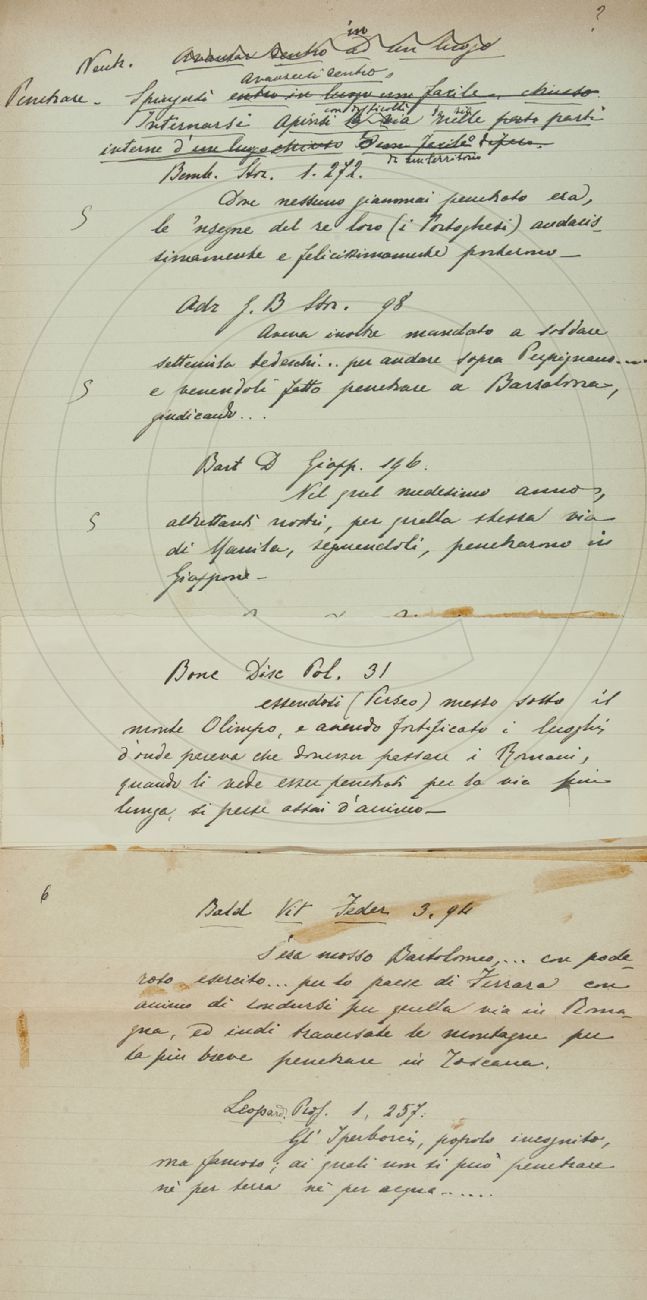 ?
in
Neutr. Avanzar dentro ad un luogo
avanzarsi dentro,
Penetrare - Spingersi entro in luogo non facile, chiuso
con difficoltà
Internarsi Aprirsi la via nelle parti
interne d'un luogo chiuso d'un difeso.
di un territorio
Bemb. Stor. 1. 272.
Dove nessuno giammai penetrato era,
le 'nsegne del re loro (i Portoghesi) audacis-
simamente e felicissimamente porterono -
Adr. G. B Stor. 98
Aveva inoltre mandato a soldare
settemila tedeschi... per andare sopra Perpignano....
e venendoli fatto penetrare a Barzalona,
giudicando...
Bart D Giapp. 196.
Nel quel medesimo anno,
altrettanti nostri, per quella stessa via
di Manila, seguendoli, penetrarono in
Giappone -
Bone Disc Pol. 31
essendosi (Perseo) messo sotto il
monte Olimpo, e avendo fortificato i luoghi
d'onde pareva che dovesser passare i Romani,
quando li vede esser penetrati per la via più
lunga, si perse assai d'animo -
6
Bald Vit Feder 3. 94
S'era mosso Bartolomeo,... con pode-
roso esercito... per lo paese di Ferrara con
animo di condursi per quella via in Roma-
gna, ed indi traversate le montagne per
la più breve penetrare in Toscana.
Leopard. Pros. 1. 257.
Gl' Iperborei, popolo incognito,
ma famoso; ai quali non si può penetrare
nè per terra nè per acqua......